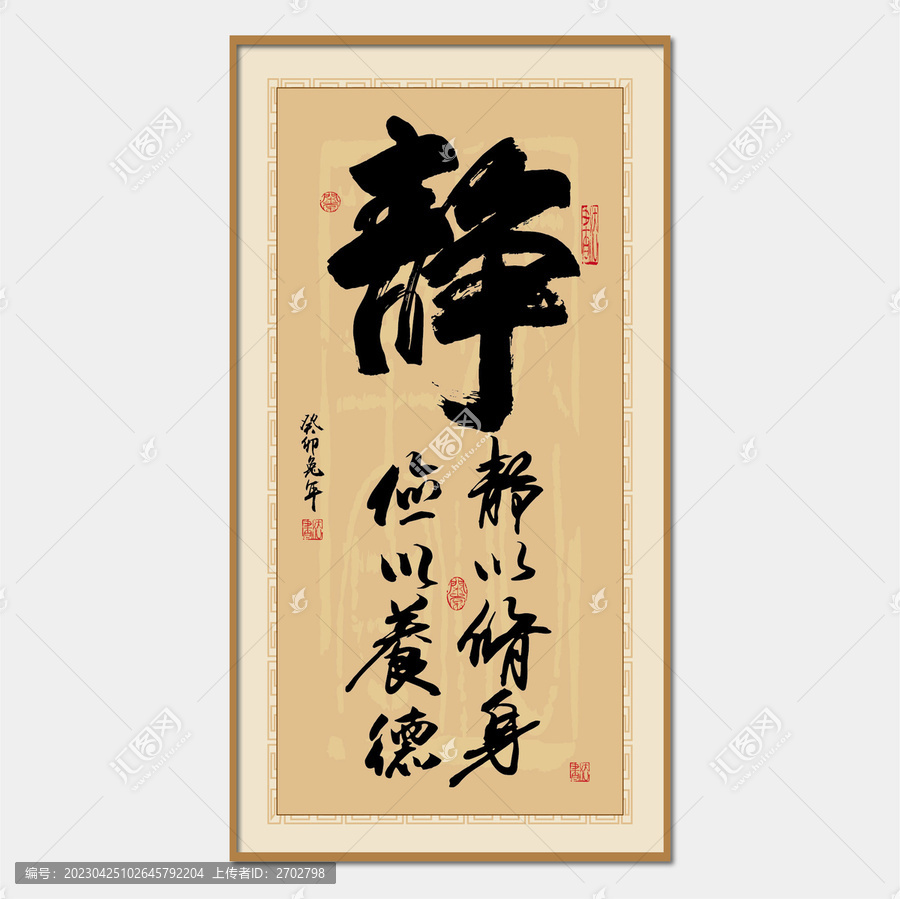 靜
靜以修身
俭以養德
癸卯兔年
汇图网
www.huitu.com
编号：20230425102645792204 上传者ID：2702798